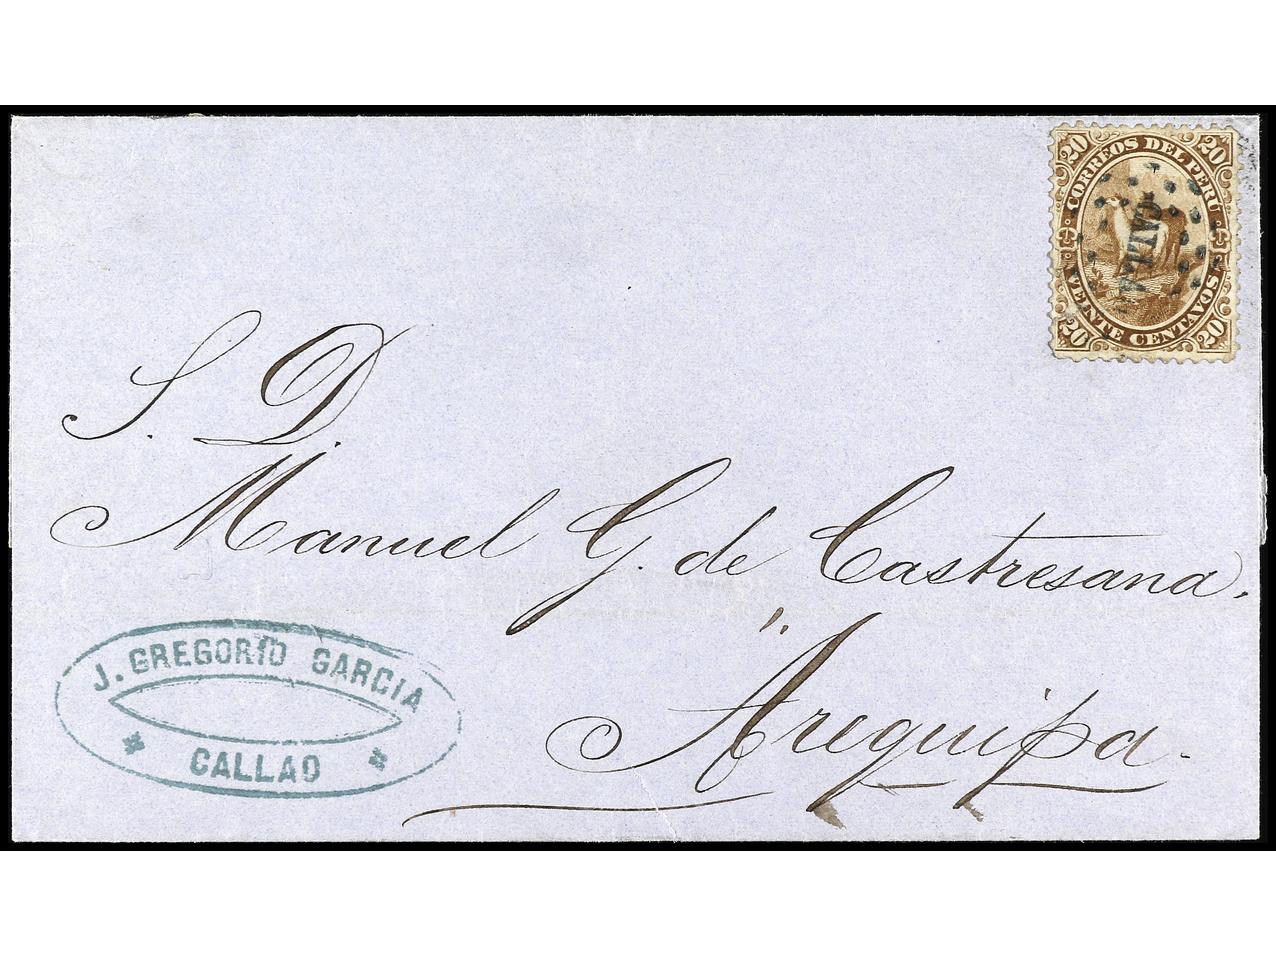 20 CORREOS DEL PERU 20
CALLA
20 VEINTE CENTAVOS 20
S. D.
Manuel G. de Castresana.
Arequipa.
J. GREGORIO GARCIA
CALLAO